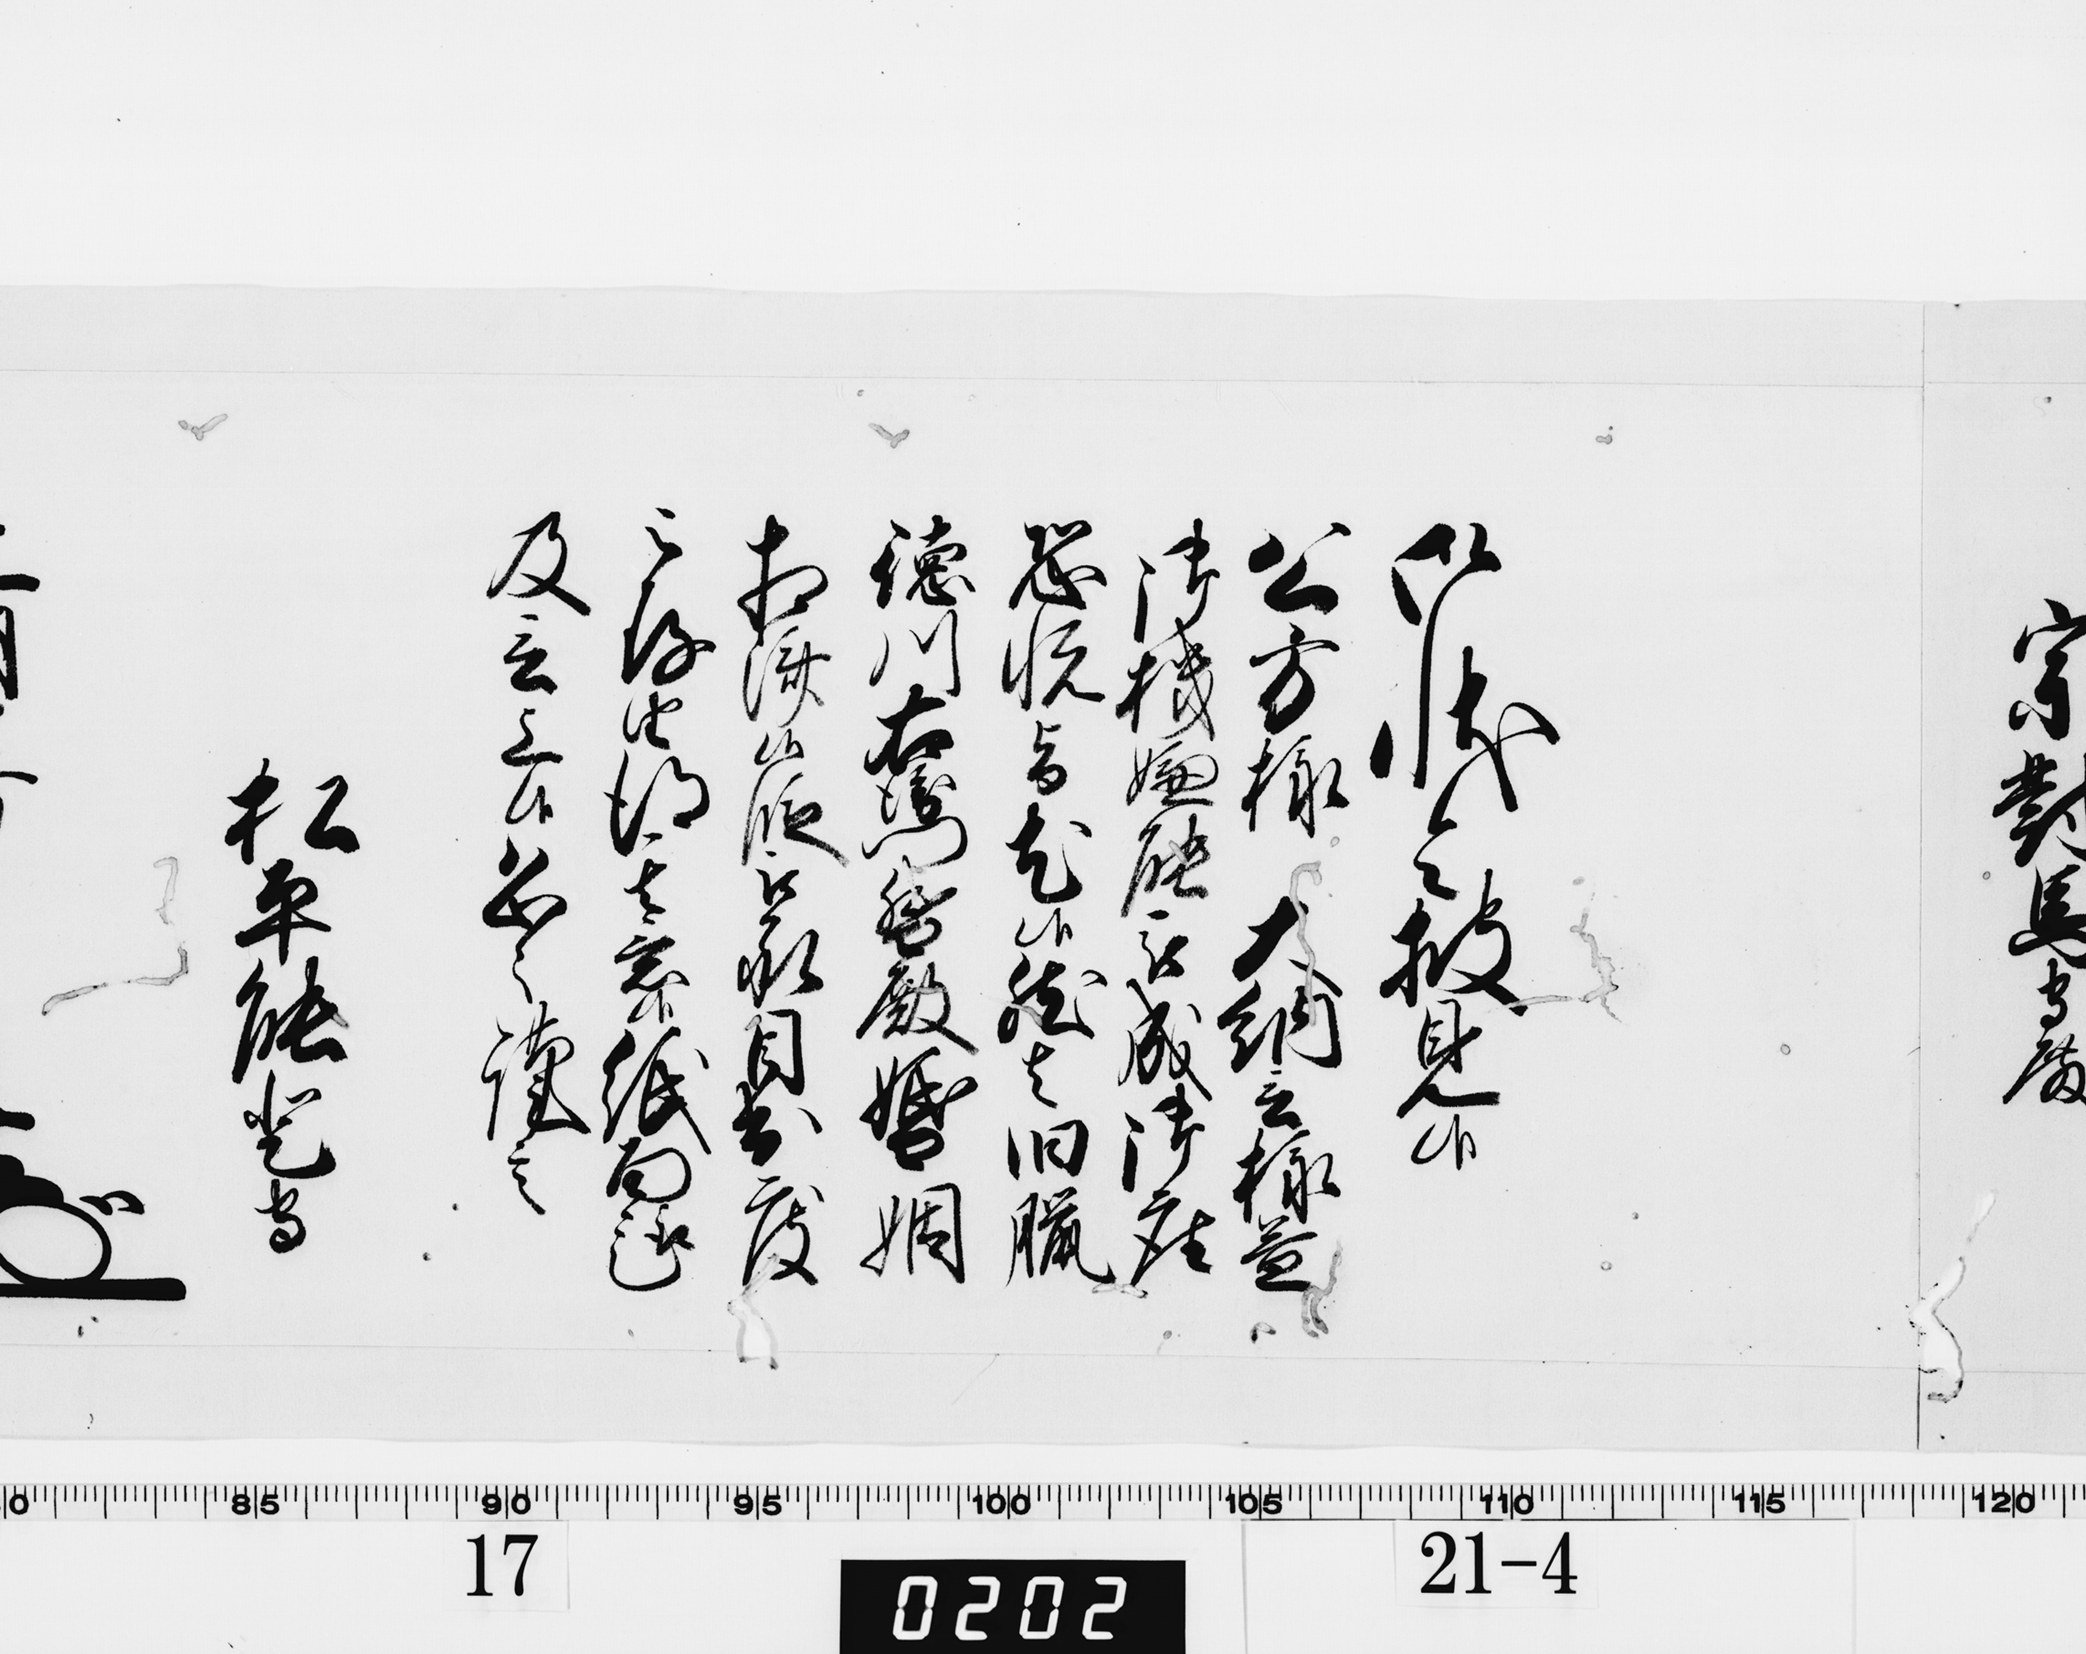 宗對馬守殿
御状令披見候
公方様 大納言様益
御機嫌能被成御座
恐悦旨尤候然者旧臘
徳川右衛門督殿婚姻
相済候段被承目出度
被存由得其意候紙面趣
及言上候恐々謹言
松平能登守
85 90 95 100 105 110 115 120
17
21-4
0202